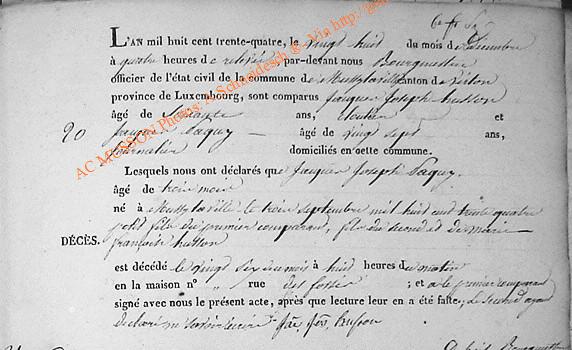 L'AN mil huit cent trente-quatre, le vingt huit du mois de Décembre
à quatre heures de relevée par-devant nous Bourgmestre
officier de l'état civil de la commune de Mussy la ville canton de Virton
province de Luxembourg, sont comparus Jacques Joseph husson
âgé de soixante ans, cloutier et
20 Jacques Paquy âgé de vingt sept ans,
journalier domiciliés en cette commune.
Lesquels nous ont déclarés que Jacques Joseph Paquy,
âgé de trois mois
né à Mussy la ville le trois septembre mil huit cent trente quatre
petit fils du premier comparant, fils du second et de marie
DÉCÈS. françoise husson
est décédé le vingt six du mois à huit heures du matin
en la maison n° „ rue des fossés ; et a le premier comparant
signé avec nous le présent acte, après que lecture leur en a été faite, le second ayant
déclaré ne savoir husson
AC MUSSON Photos: A. Schneidesch ® - Via http://